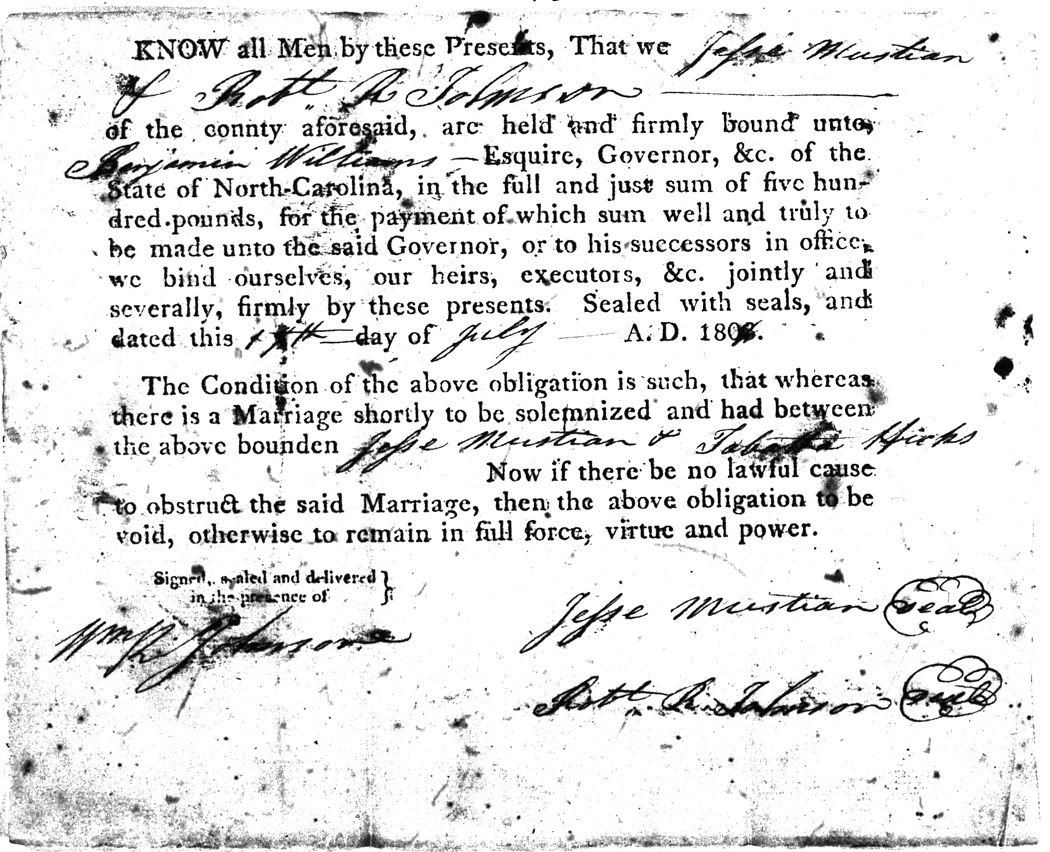 KNOW all Men by these Presents, That we Jesse Mustian
& Robt. R Johnson
of the county aforesaid, are held and firmly bound unto,
Benjamin Williams — Esquire, Governor, &c. of the
State of North-Carolina, in the full and just sum of five hun-
dred pounds, for the payment of which sum well and truly to
be made unto the said Governor, or to his successors in office,
we bind ourselves, our heirs, executors, &c. jointly and
severally, firmly by these presents. Sealed with seals, and
dated this day of July A. D.
The Condition of the above obligation is such, that whereas
there is a Marriage shortly to be solemnized and had between
the above bounden Jesse Mustian & Tabatha Hicks
Now if there be no lawful cause
to obstruct the said Marriage, then the above obligation to be
void, otherwise to remain in full force, virtue and power.
Signed, sealed and delivered }
in the presence of
Wm R Johnson
Jesse Mustian seal
Robt. R. Johnson seal